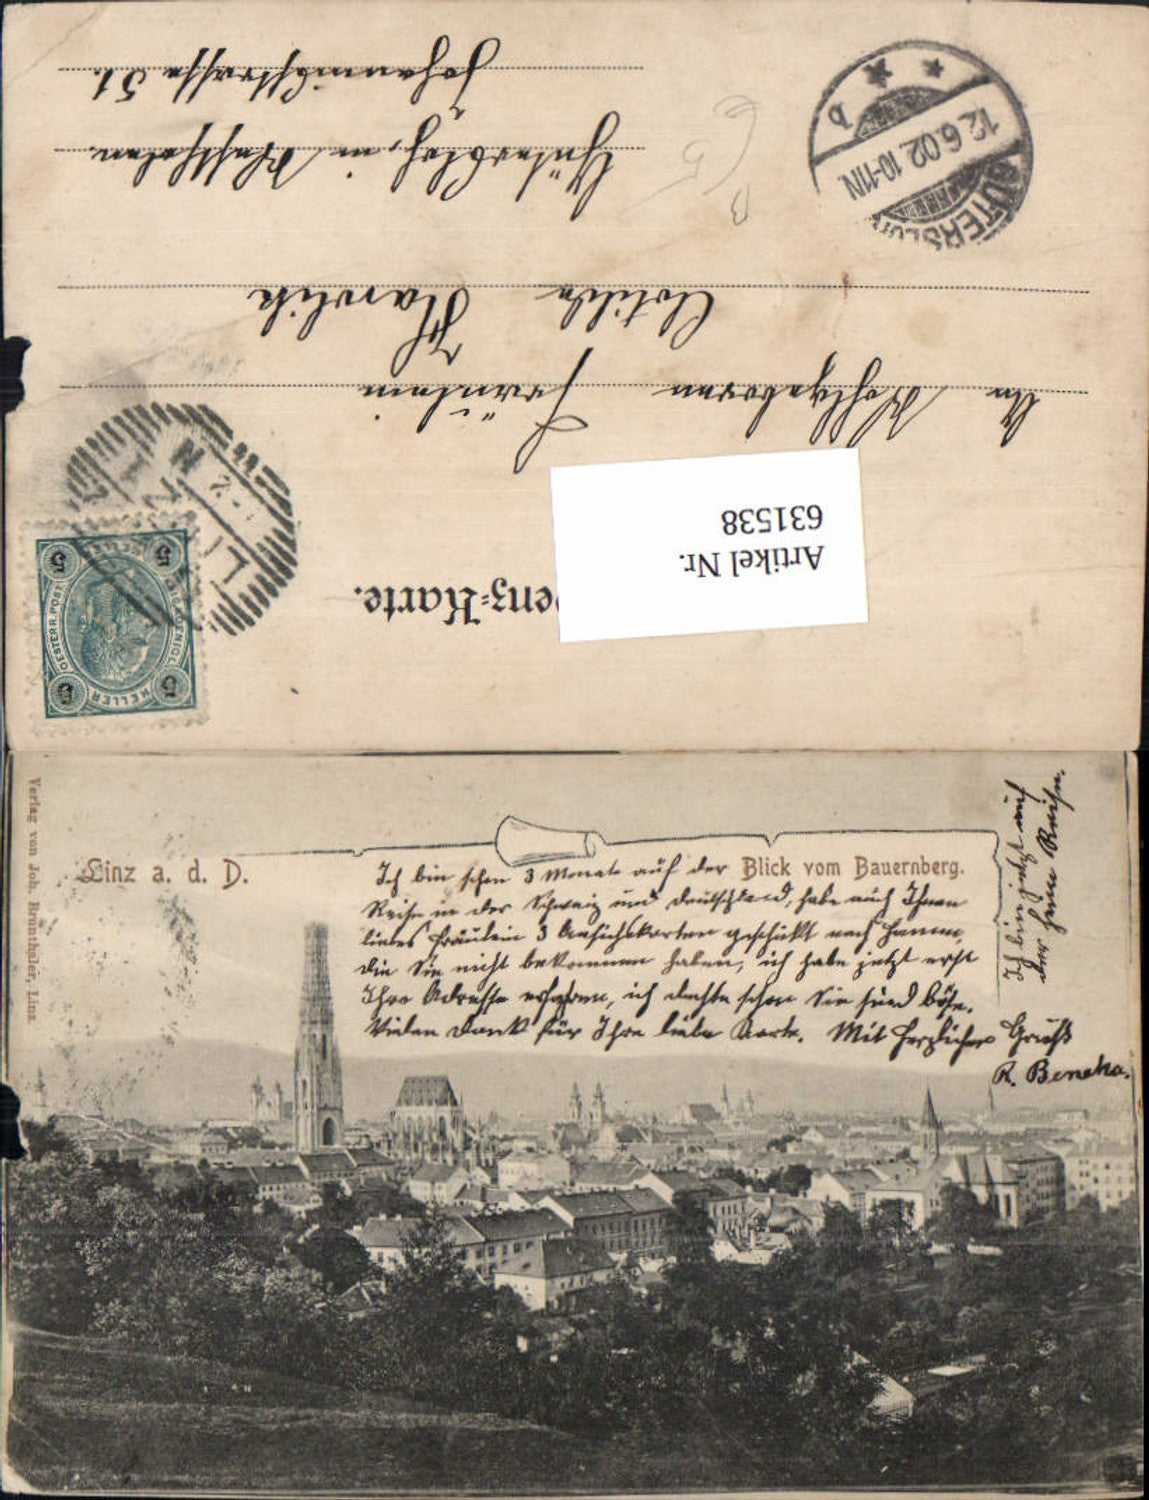 Correspondenz-Karte.
Artikel Nr.
631538
An Wohlgeboren Fräulein
Clotilde Havlik
Gütersloh, in Westfalen.
Johannisstrasse 51.
GÜTERSLOH
12.6.02 10-11N
b
LINZ
5 5
5 5
HELLER
OESTERR. POST
HELLER
Linz a. d. D.
Blick vom Bauernberg.
Ich bin schon 3 Monate auf der
Reise in der Schweiz und Deutschland, habe auch Ihnen
liebes Fräulein 3 Ansichtskarten geschickt nach Hamm,
die Sie nicht bekommen haben, ich habe jetzt erst
Ihre Adresse erfahren, ich dachte schon Sie sind böse.
Vielen Dank für Ihre liebe Karte. Mit herzlichen Gruß
R. Beneka.
Ich bin jetzt auf
der heim Reise.
Verlag von Joh. Brunthaler, Linz.